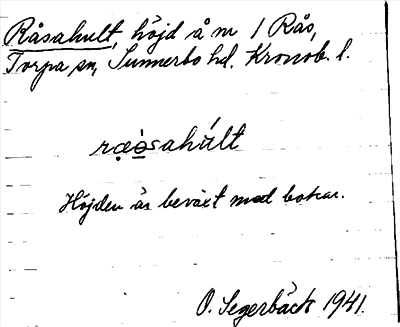 Råsahult, höjd å m 1 Rås,
Torpa sn, Sunnerbo hd. Kronob. l.
ræòsahúlt
Höjden är beväxt med bokar.
O. Segerbäck 1941.